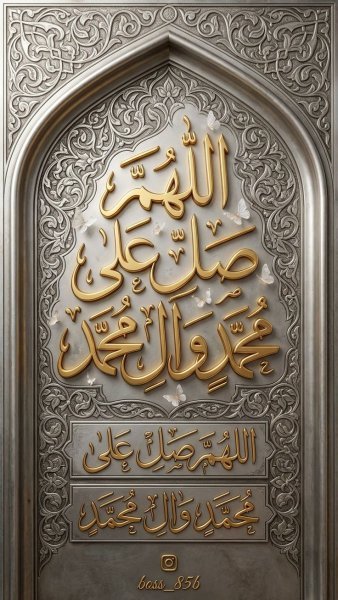 اللَّهُمَّ
صَلِّ عَلَى
مُحَمَّدٍ وَآلِ مُحَمَّد
اللَّهُمَّ صَلِّ عَلَى
مُحَمَّدٍ وَالِ مُحَمَّدٍ
boss_856